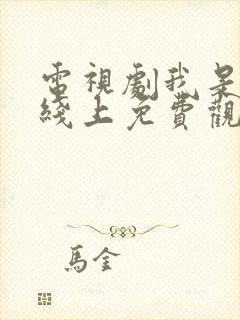 電視劇我是
綫上免費觀
馬金